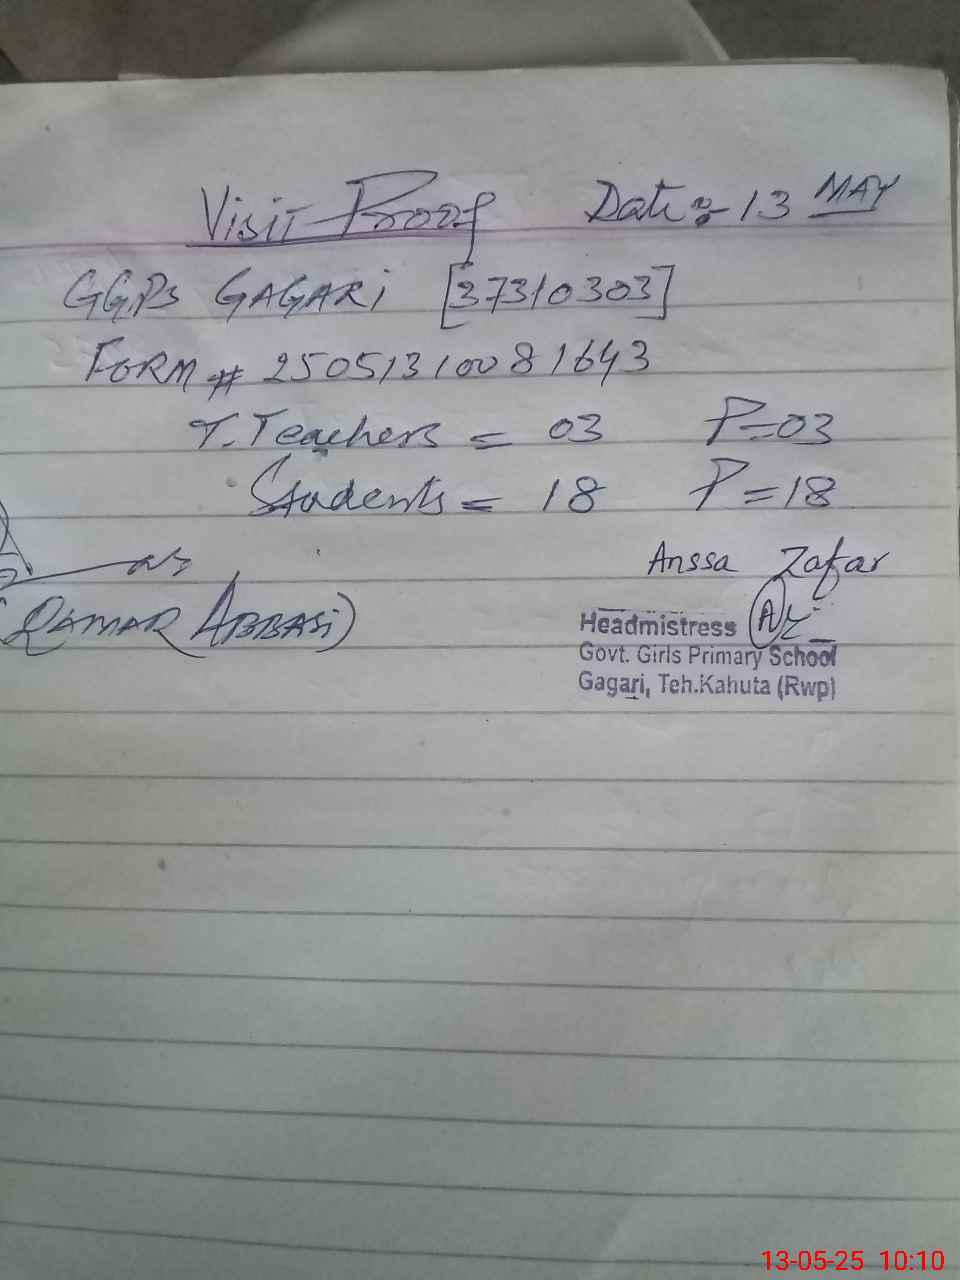 Visit Proof Date :- 13 MAY
GGPS GAGARi [37310303]
FORM # 2505131008 1643
T. Teachers = 03 P=03
Students = 18 P=18
Anssa Zafar
(QAMAR ABBASi)
Headmistress
Govt. Girls Primary School
Gagari, Teh.Kahuta (Rwp)
13-05-25 10:10